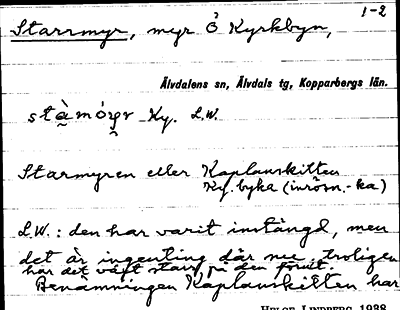 1-2
Starrmyr, myr Ö Kyrkbyn,
Älvdalens sn, Älvdals tg, Kopparbergs län.
Ky. L.W.
Starmyren eller Kaplanskitten
Ky. byka (inröm.-ka)
L.W.: den har varit instängd, men
det är ingenting där nu, troligen
har det växt starr på den förut.
Benämningen Kaplanskitten har
HELGE LINDBERG 1988